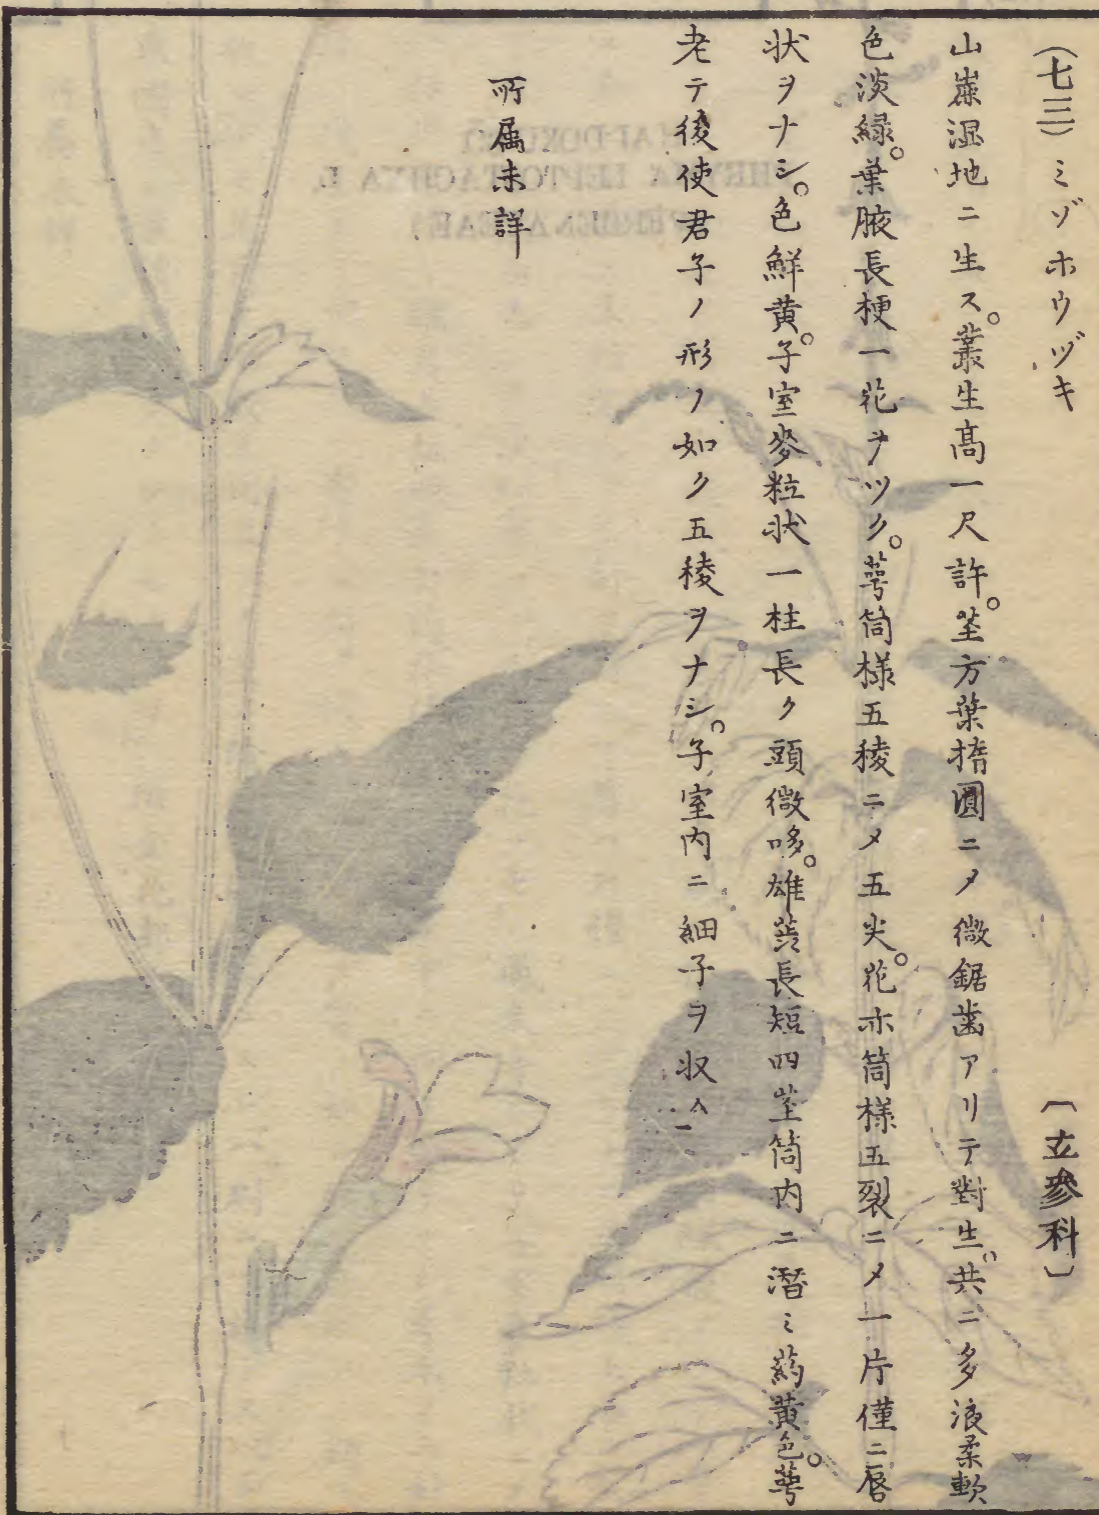 (七三)ミゾホウヅキ 〔玄参科〕
山崖湿地ニ生ス。叢生高一尺許。茎方葉楕圓ニメ微鋸歯アリテ對生。共ニ多液柔軟
色淡緑。葉腋長梗一花ヲツク。萼筒様五稜ニメ五尖。花亦筒様五裂ニメ一片僅ニ唇
状ヲナシ。色鮮黄。子室麥粒状一柱長ク頭微哆。雄蕊長短四茎筒内ニ潜ミ葯黄色。萼
老テ後使君子ノ形ノ如ク五稜ヲナシ。子室内ニ細子ヲ収ム
所属未詳